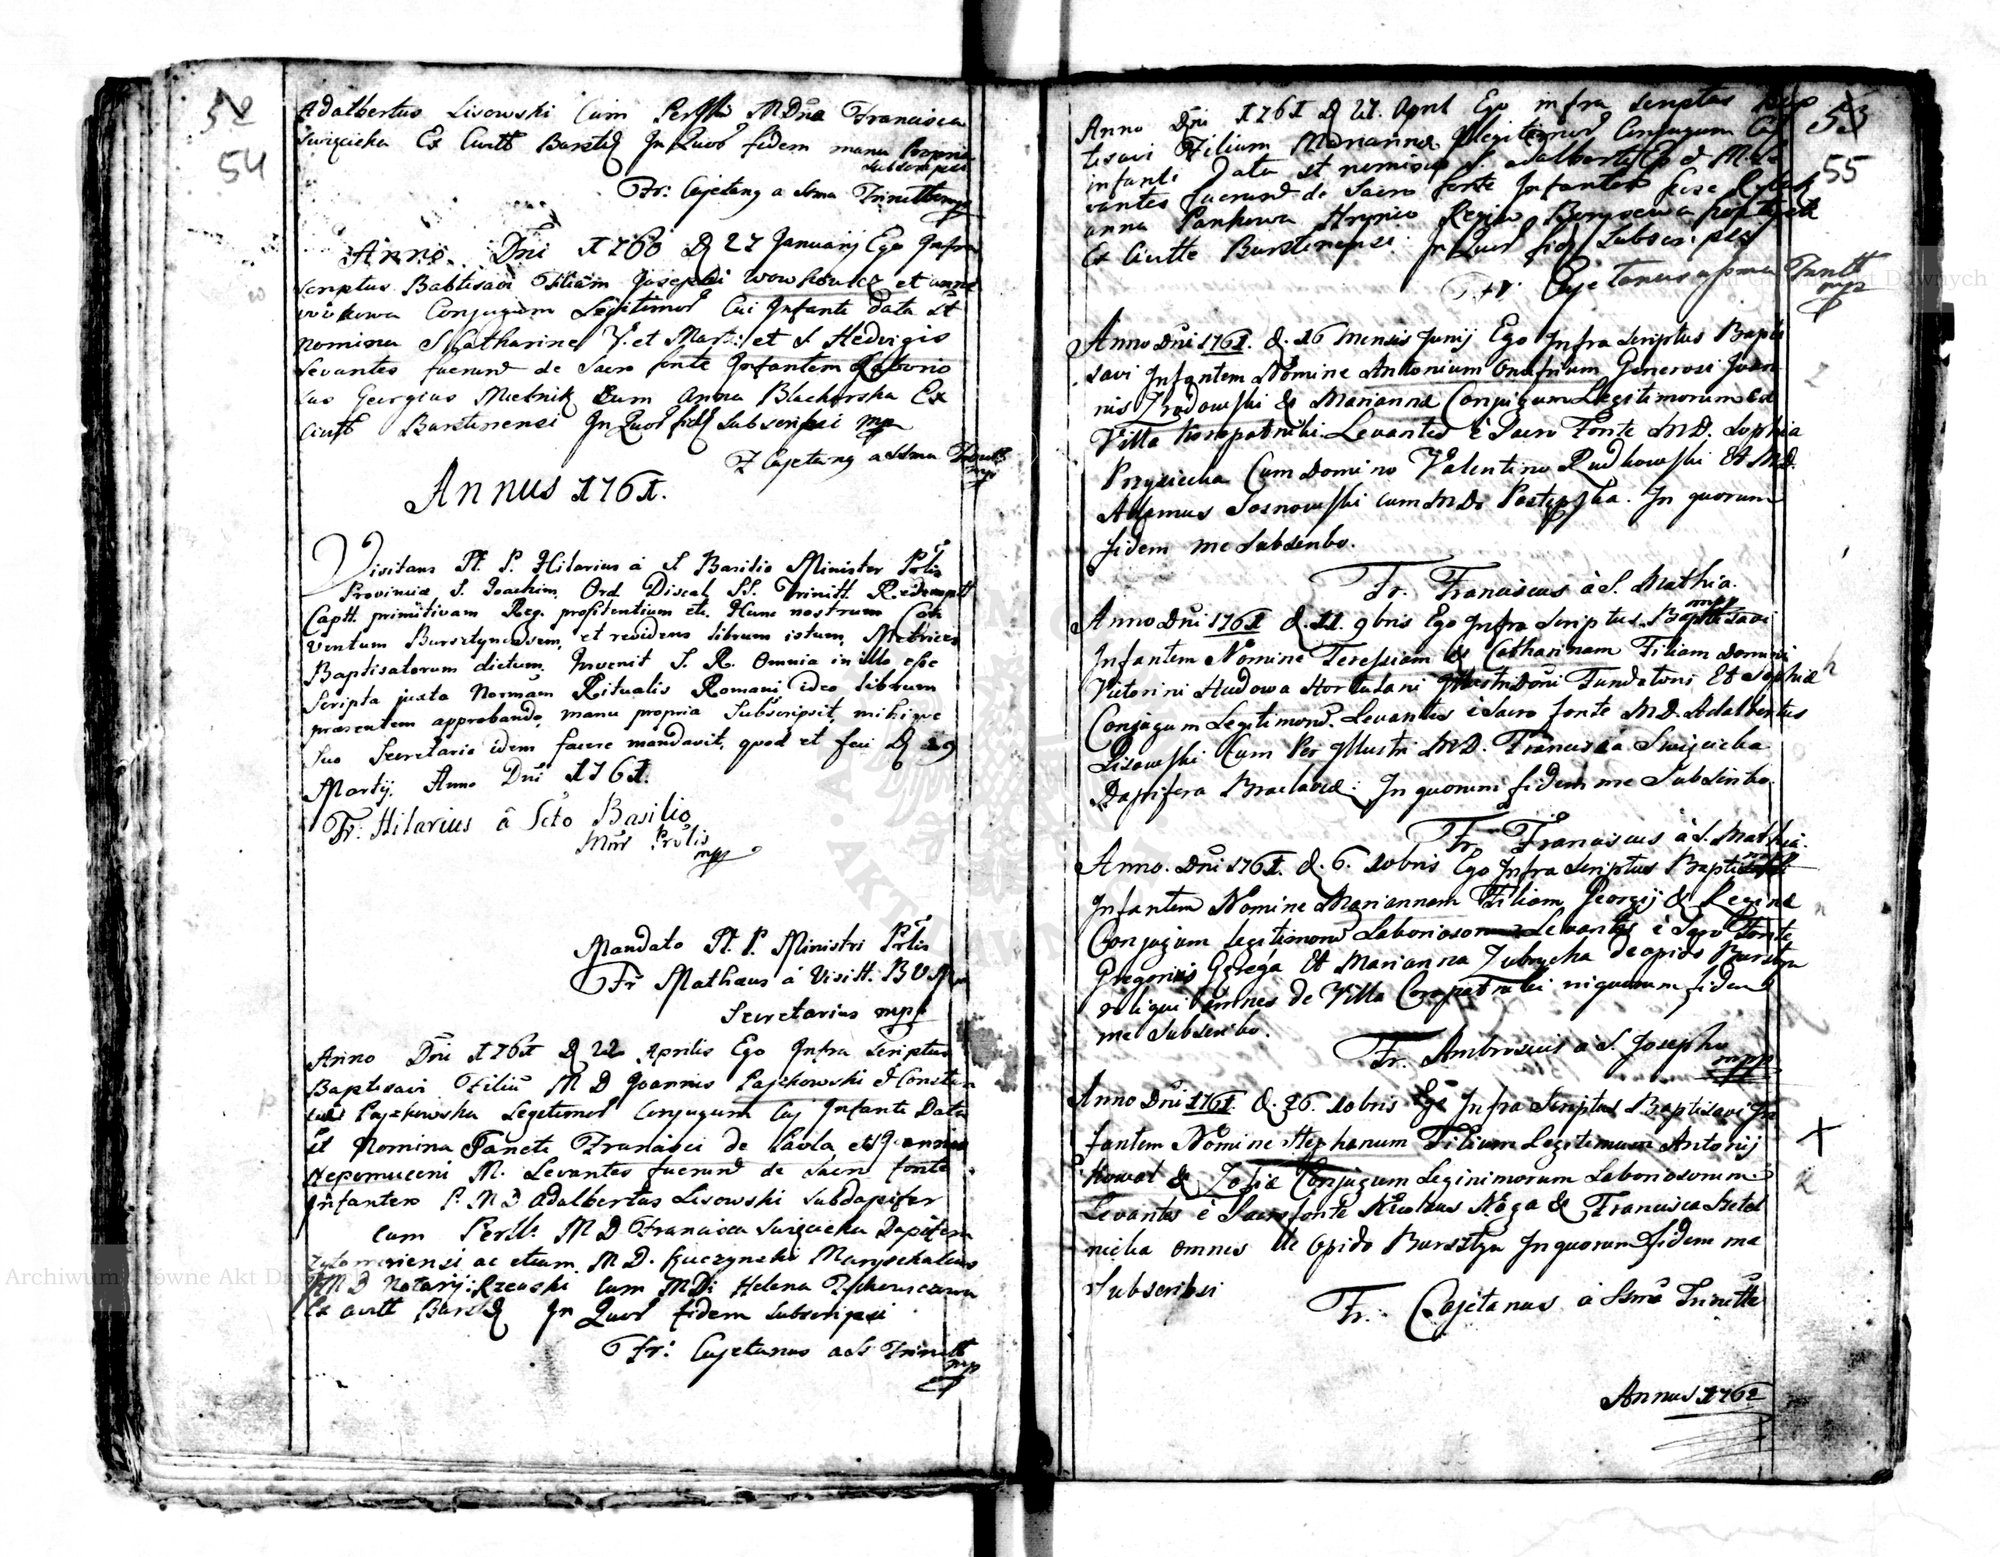 52
54
Adalbertus Lisowski Cum Perlli MDna Francisca
Swizicka Ex Cvitt Bursztd In Quor fidem manu Propria
Subscripsi
Fr: Cajetang a Ssma Trinitte mp
Anno Dni 1760 D 27 Januarij Ego Infra
scriptus Babtisavi Filiam Josephi et Anna
Conjugum Legitimor Cui Infanti data st
nomina S Catharine V. et Mart: et S Hedvigis
Levantes fuerunt de Sacro fonte Infantem Laborio
sus Georgius Mielnik Cum Anna Blacharska Ex
Civitt Burstinensi In Quor fid Subscripsi mp
F Cajetang a Ssma Trinitt
mp
Annus 1761.
Visitans Pt. P. Hilarius à S Basilio Minister Prlis
Provinciæ S. Joachim, Ord Discal SS. Trinitt Redempt
Captt. primitivam Reg. profitentium etc. Hunc nostrum Con
ventum Bursztynensem, et revidens librum istum, Metrices
Baptisatorum dictum, Invenit S. R. Omnia in illo esse
Scripta juxta Normam Ritualis Romani, ideo librum
præsentem approbando, manu propria Subscripsit, mihique
suo Secretario idem facere mandavit, quod et feci D 29
Martij, Anno Dni 1761.
Fr: Hilarius â Scto Basilio
Mnr Prulis
mpp
Mandato Pt. P. Ministri Prlis
Fr Mathæus á Visitt. B V M
Secretarius mpp
Anno Dni 1761 D 22 Aprilis Ego Infra scriptus
Baptisavi Filiu M D Joannis Pajzkowski & Constan
Pajzkowska Legitimor Conjugum Cuj Infanti Data
st Nomina Sancti Francisci de Paola et Joannis
Nepomuceni M. Levantes fuerunt de Sacro fonte
Infantem P. M D Adalbertus Lisowski Subdapifer
Cum Perll: M D Francisca Swizicka Dapifera
Zytomiriensi ac etiam M D. Kuczynski Maryschalcus
M D Notarij: Rzewski Cum MD: Helena
Ex Civitt Burszd In Quor fidem Subscripsi
Fr: Cajetanus a SS Trinitt
mp
53
55
Anno Dni 1761 D 27 April Ego infra scriptus Bap
tisavi Filium Marianna Illegitimor Conjugum Cuj
infanti Data st nomina S. Adalberti Ep & M. Le
vantes fuerunt de Sacro fonte Infantem
anna Pankowa Hrynio Regina
Ex Civitte Burstinensi: In Quor fid Subscripsi
Fr: Cajetanus a ssma Trintt
mpp
Anno Dni 1761. d. 16 mensis Junij Ego Infra Scriptus Bapti
savi Infantem Nomine Antonium Onufrium Generosi Joan
nis Zradowski & Marianna Conjugum Legitimorum Ex
Villa Koropatniki. Levantes è Sacro Fonte M D. Sophia
Przyziecka Cum Domino Valentino Rudkowski Et M D.
Adamus Sosnowski cum M D. Postępska. In quorum
fidem me Subscribo.
Fr. Franciscus à S. Mathia.
mpp
Anno Dni 1761 d. 11. 9bris Ego Infra Scriptus Baptisavi
Infantem Nomine Teressiam & Catharinam Filiam Domini
Victorini Hudowa Hortulani Illustri Domi Fundatoris Et Sophiæ
Conjugum Legitimoru. Levantes è Sacro fonte M D. Adalbertus
Lisowski Cum Per Illustri M D. Francisca Swizicka
Dapifera Braclaviæ: In quorum fidem me Subscribo.
Fr. Franciscus à S. Mathia.
Anno. Dni 1761. d. 6. 10bris Ego Infra Scriptus Baptisavi
Infantem Nomine Mariannam Filiam Georgij & Regina
Conjugum legitimoru Laboriosoru Levantes è Sacro Fonte
Gregorius Et Marianna Zubrycka de opido Burstyn
reliqui omnes de Villa Coropatniki in quorum fidem
me Subscribo.
Fr. Ambrosius à S. Josepho
mpp
Anno Dni 1761. d. 26. 10bris Ego Infra Scriptus Baptisavi In
fantem Nomine Stephanum Filium Legitimum Antonij
Kowal & Zofiæ Conjugum Leginimorum Laboriosorum
Levantes è Sacro fonte Nicolaus Noga & Francisca
nicka omnes de Opido Bursztyn In quorum fidem me
Subscribsi
Fr: Cajetanus à Ssma Trinitte
Annus 1762